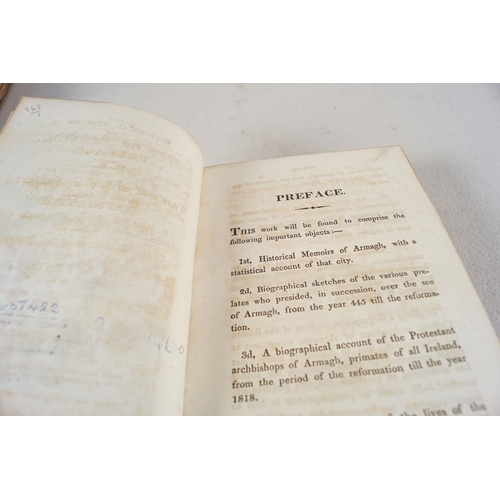 PREFACE.
THIS work will be found to comprise the
following important objects:—
1st, Historical Memoirs of Armagh, with a
statistical account of that city.
2d, Biographical sketches of the various pre-
lates who presided, in succession, over the see
of Armagh, from the year 445 till the reforma-
tion.
3d, A biographical account of the Protestant
archbishops of Armagh, primates of all Ireland,
from the period of the reformation till the year
1818.
of the lives of the